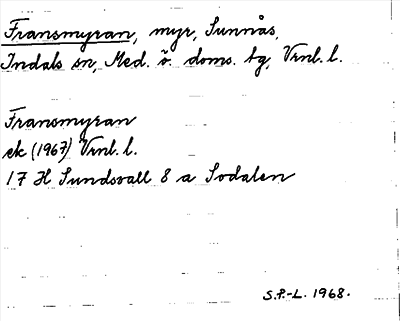 Fransmyran, myr, Sunnås,
Indals sn, Med. ö. doms. tg, Vrnl. l.
Fransmyran
ek (1967) Vrnl. l.
17 H Sundsvall 8 a Sodalen
S.P.-L. 1968.